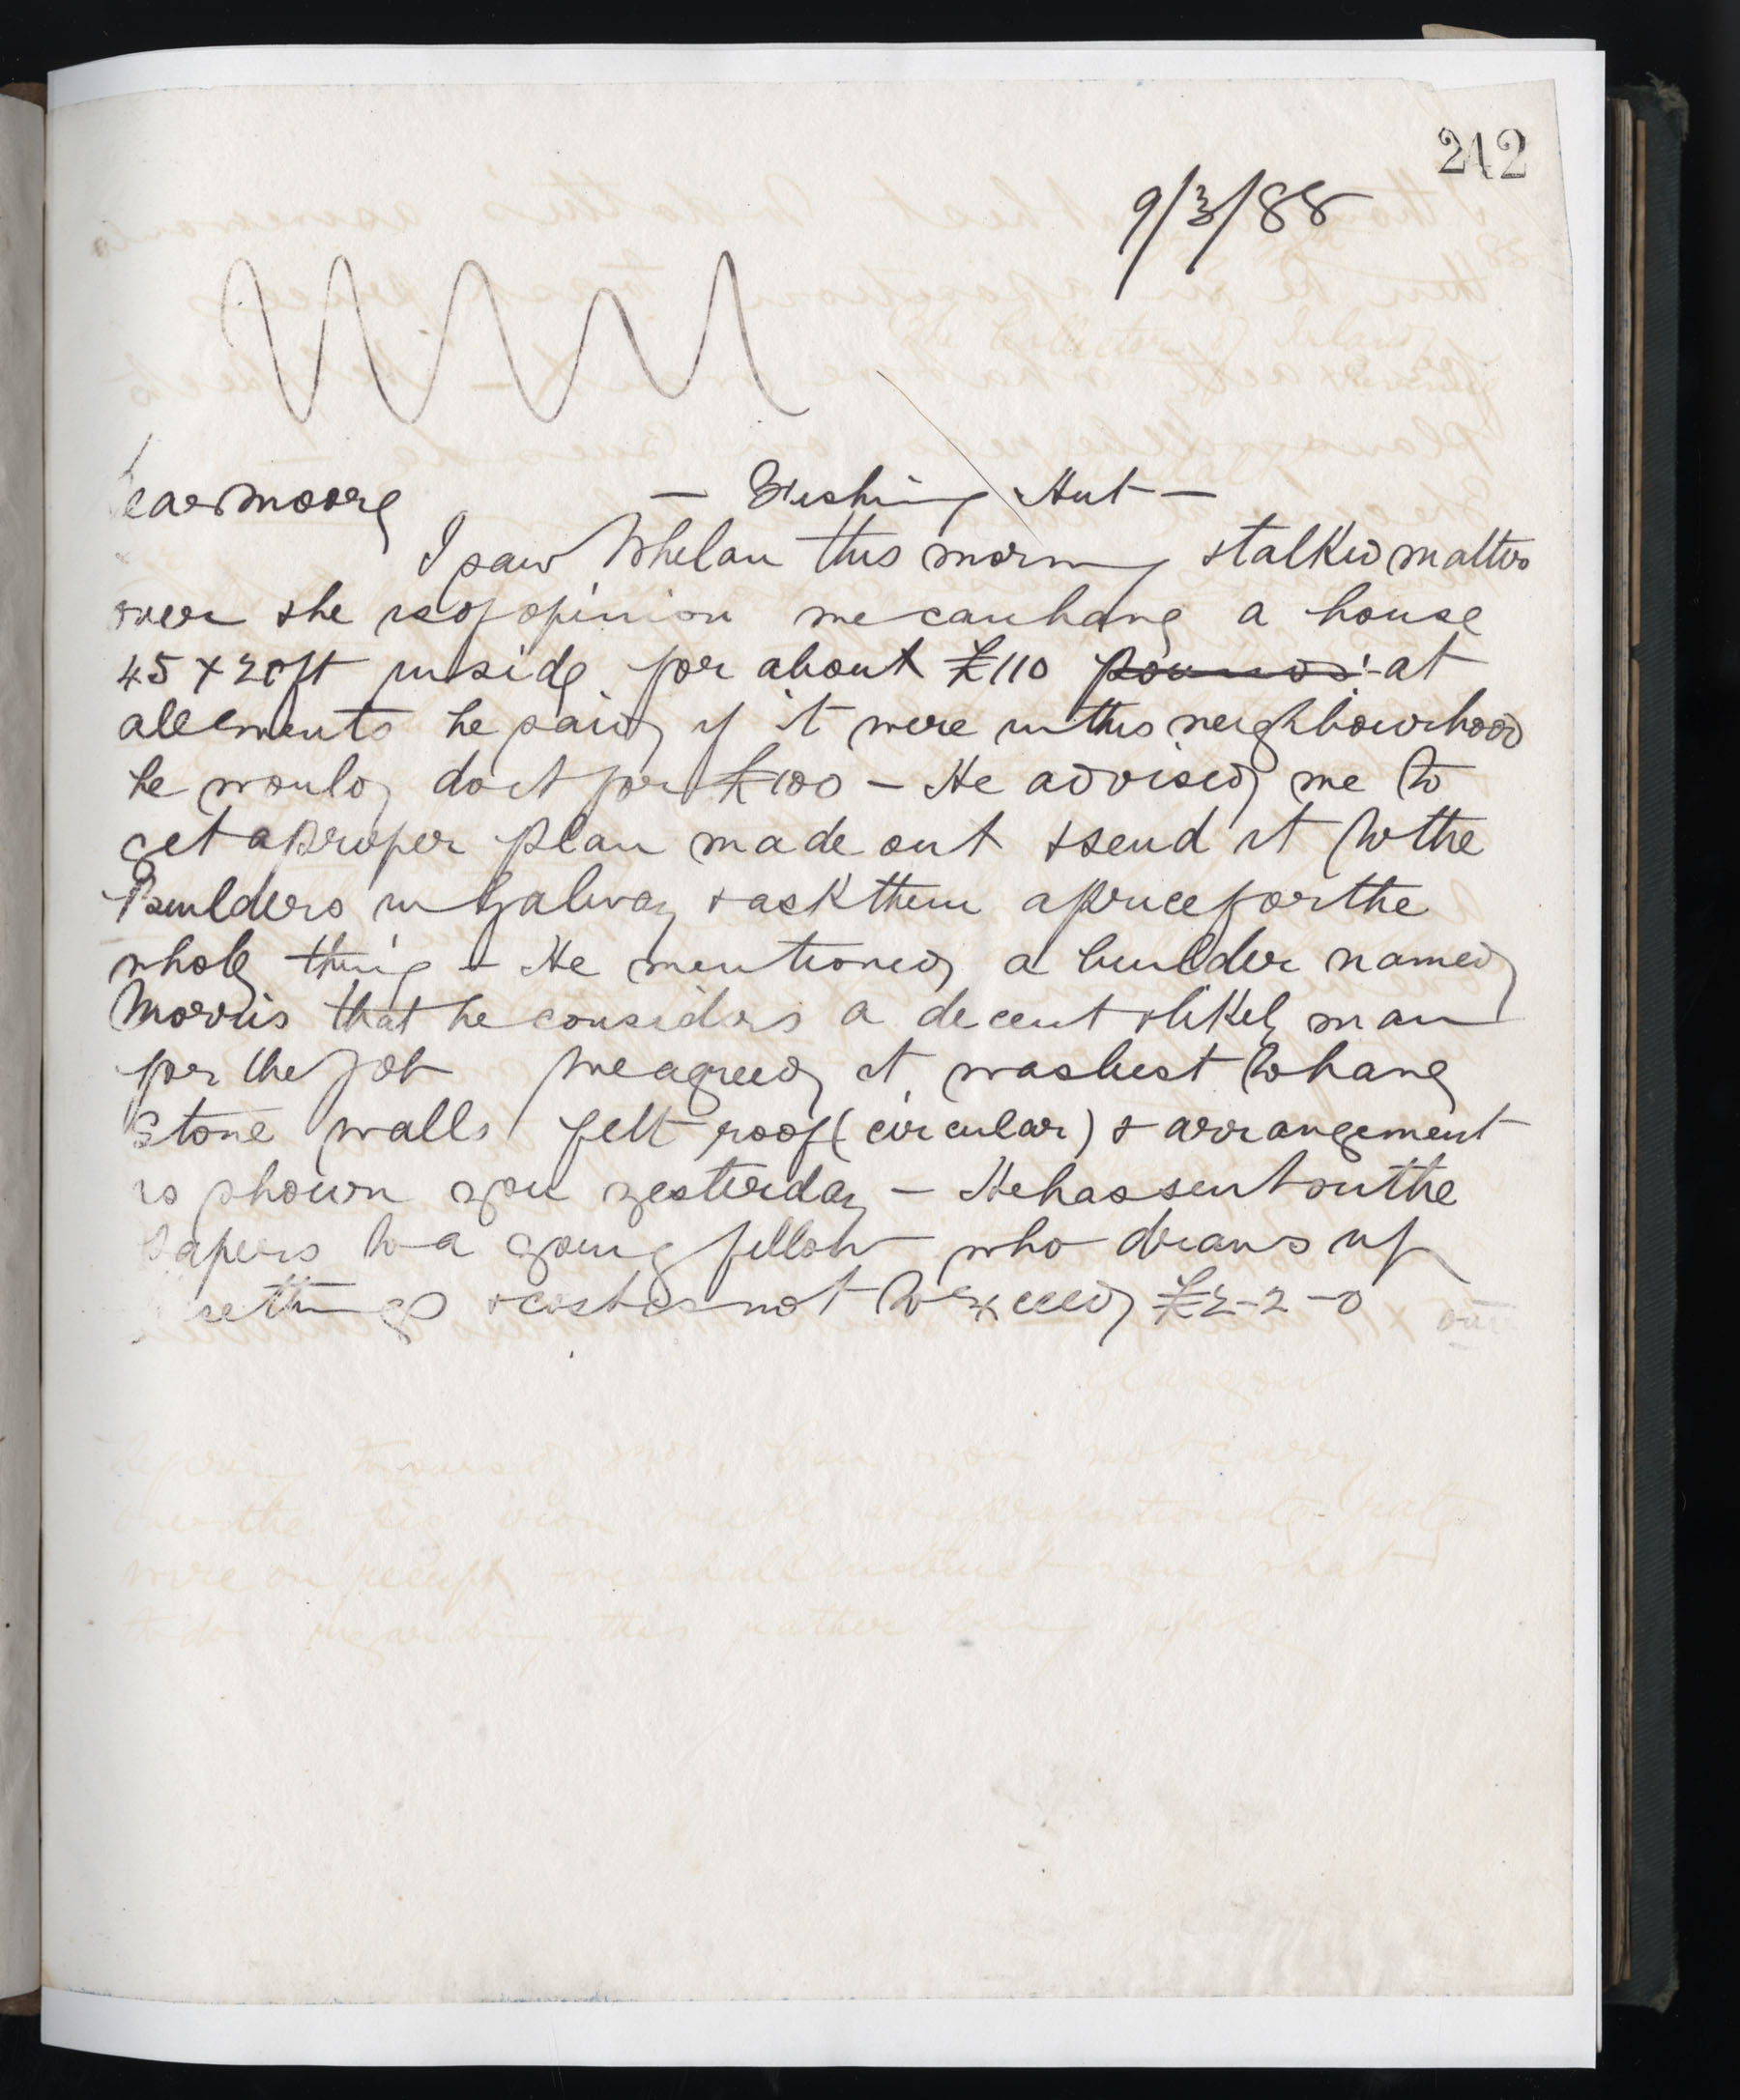 242
9/3/88
Dear Moore — Fishing Hut —
I saw Whelan this morning & talked matters
over & he is of opinion we can have a house
45 x 20ft inside for about £110 pounds: at
all events he said if it were in this neighbourhood
he would do it for £100 — He advised me to
get a proper plan made out & send it to the
Builders in Galway & ask them a price for the
whole thing — He mentioned a builder named
Morris that he considers a decent & likely man
for the job We agreed it was best to have
stone walls felt roof (circular) & arrangement
as shown you yesterday — He has sent on the
papers to a young fellow who draws up
settings & cost is not to exceed £2-2-0